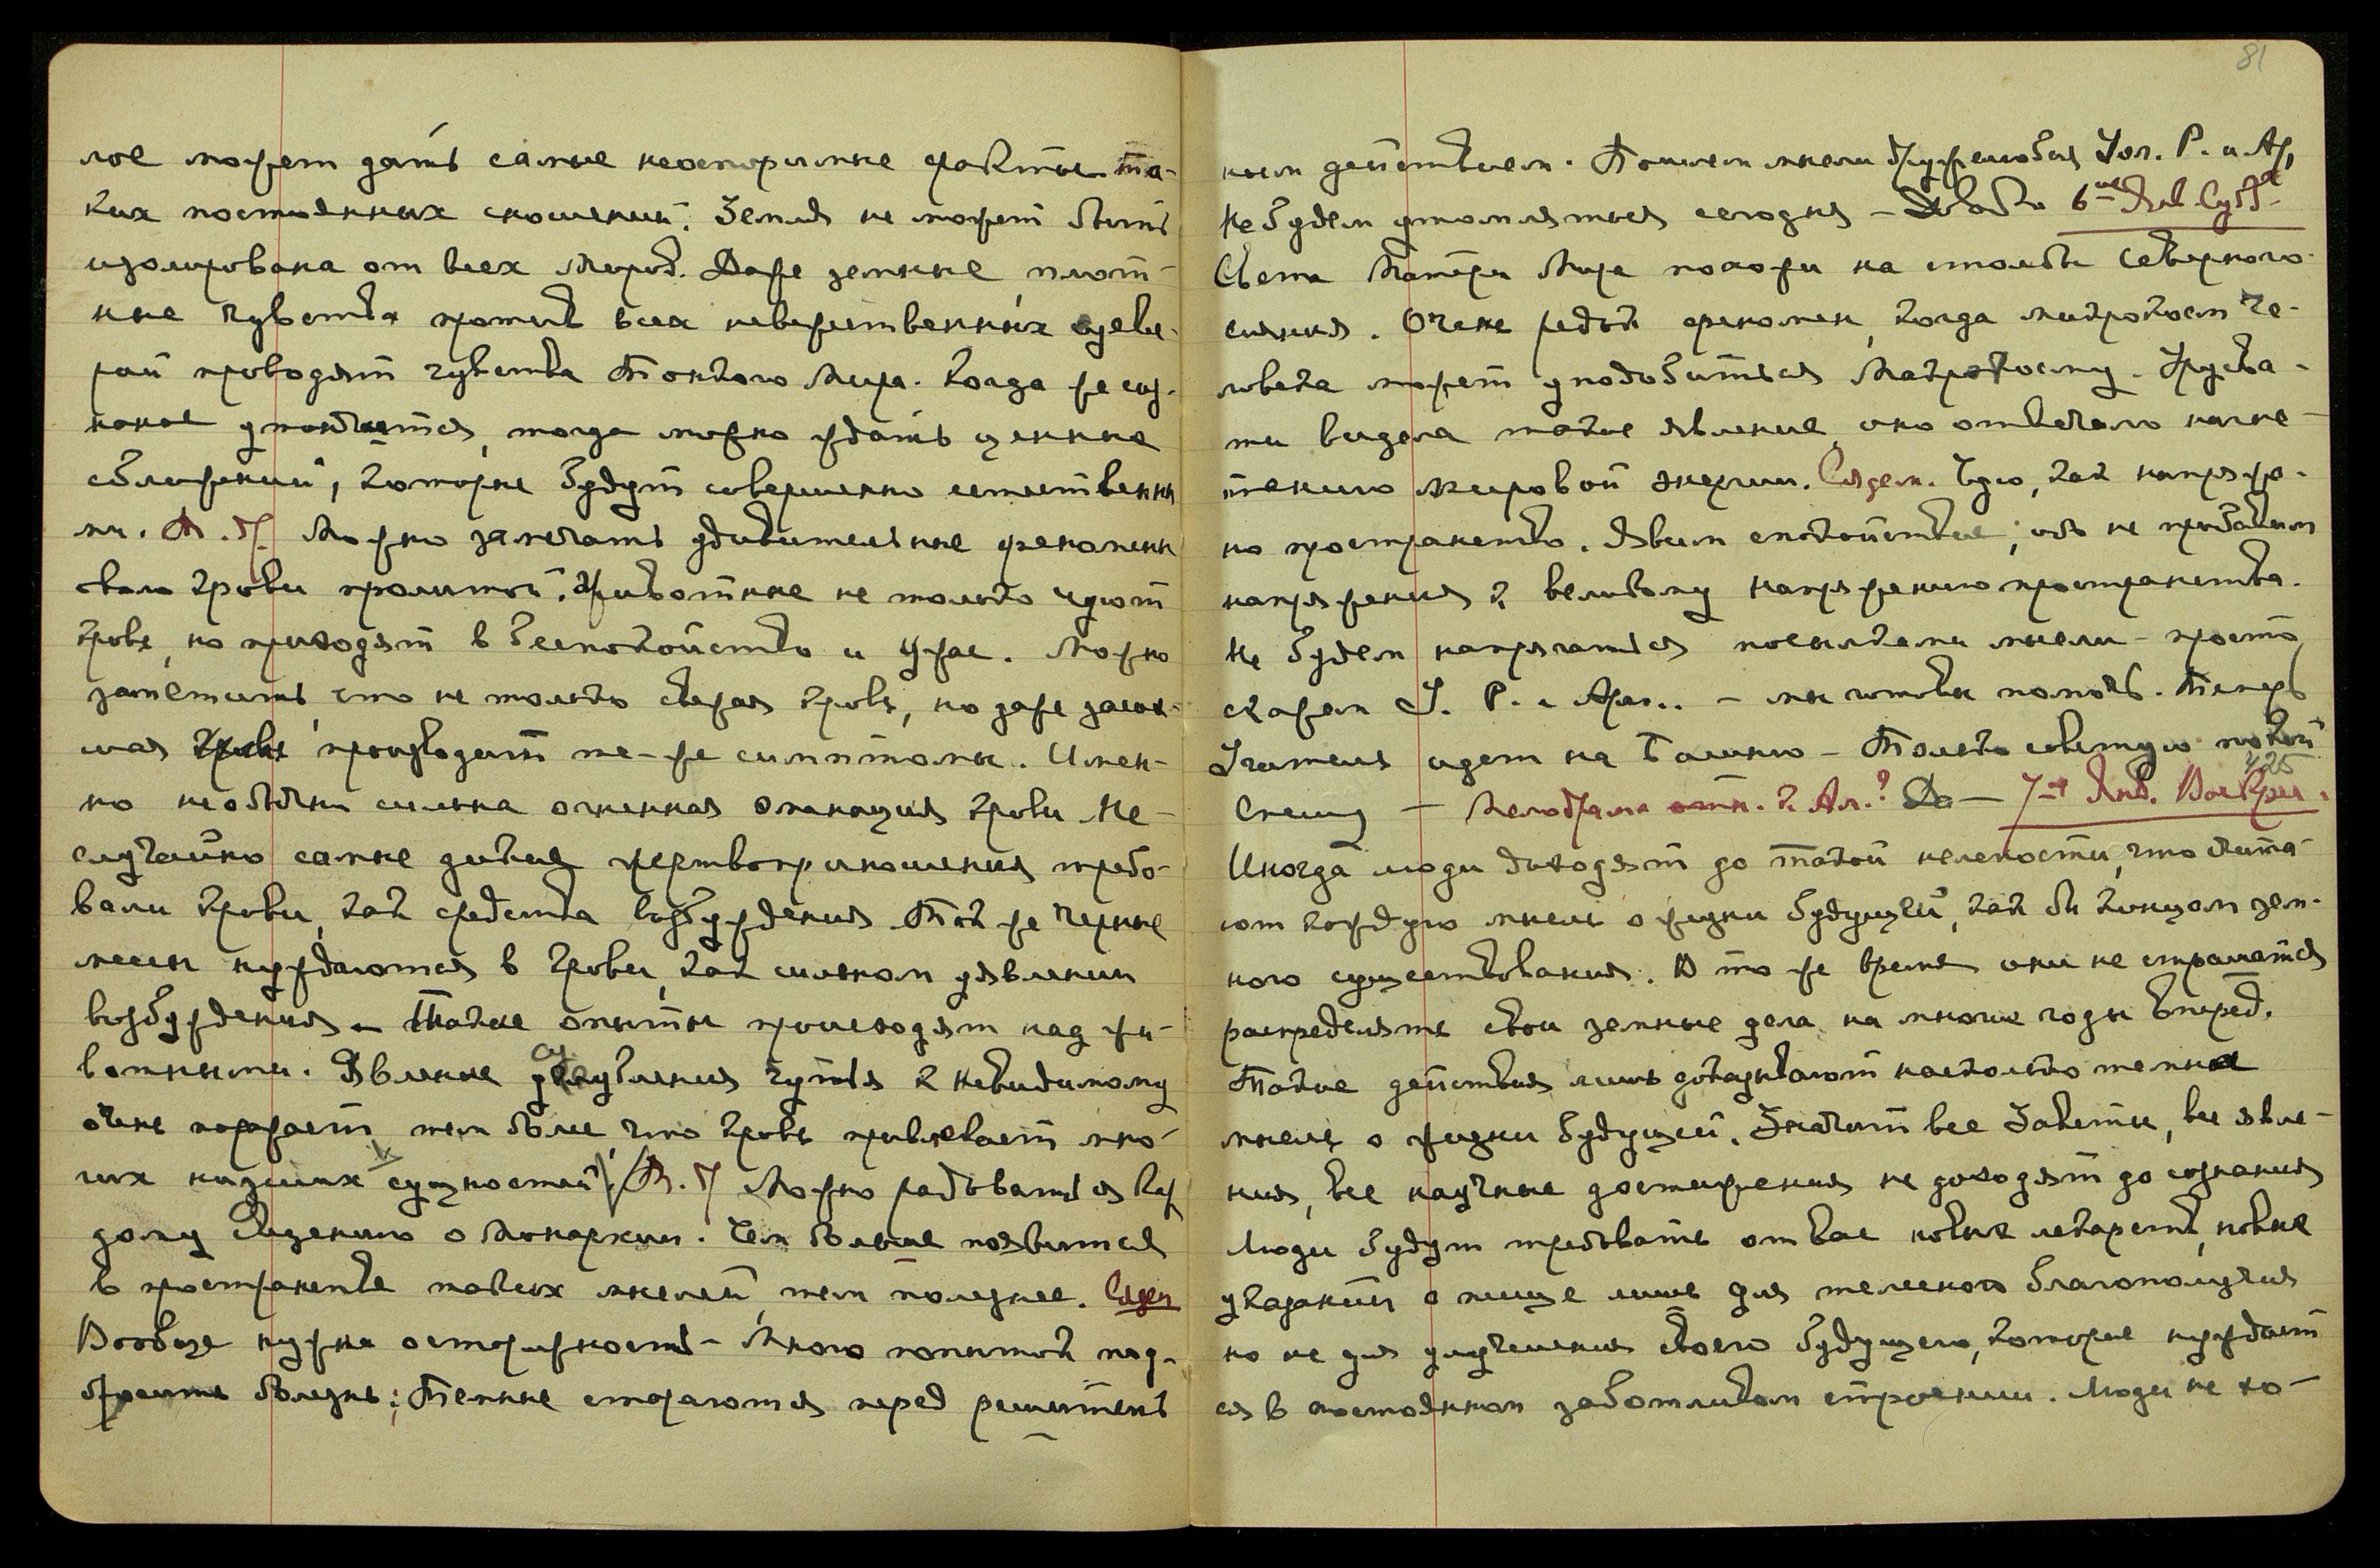 лое может дать самые неоспоримые факты та-
ких постоянных сношений. Земля не может быть
изолирована от всех миров. Даже земные, плот-
ные чувства против всех невежественных суеве-
рий проводят чувства Тонкого Мира. Когда же соз-
нание утончится, тогда можно ждать ценные
сближений, которые будут совершенно естественны
ми. А. Й. Можно замечать удивительные феномены
около крови пролитой. Животные не только чуют
кровь, но приходят в беспокойство и ужас. Можно
заметить, что не только свежая кровь, но даже засох-
шая кровь производит те-же симптомы. Имен-
но необычно сильна огненная эманация крови. Не-
случайно самые дикие жертвоприношения требо-
вали крови, как средства возбуждения. Так же черные
мессы нуждаются в крови, как сильном явлении
возбуждения – Такие опыты происходят над жи-
вотными. Явление усугубления чутья к Невидимому
очень поражает, тем более, что кровь привлекает мно-
гих низших сущностей. А. Й Можно радоваться каж
дому суждению о Монархии. Чем больше появится
в пространстве таких мыслей, тем полезнее. Сядем
Вообще нужна осторожность – Много попыток под-
бросить болезнь; Темные стараются перед решитель
81
ным действием. Пошлем мысли дружелюбия Уол. Р. и Ар,
Не будем утомляться сегодня – Довольно 6ое Янв. Субб.
Света Матери Мира похожи на столбы северного
сияния. Очень редок феномен, когда микрокосм че-
ловека может уподобиться Макрокосму. Урусва-
ти видела такое явление, оно отвечало нагне-
тению мировой энергии. Сядем. Чую, как напряже-
но пространство. Явим спокойствие, ибо не прибавим
напряжения к великому напряжению пространства.
Не будем напрягаться посылками мысли – просто
скажем У. Р. и Ар... – мы готовы помочь. Теперь
Учитель идет на Башню – Только советую покой
425
Спешу – Мелодрама отн. к Ал.? Да – 7ое Янв. Воскрес.
Иногда люди доходят до такой нелепости, что счита-
ют каждую мысль о жизни будущей, как бы концом зем-
ного существования. В то же время они не страшатся
распределять свои земные дела на многие годы вперед.
Такие действия лишь доказывают насколько темна
мысль о жизни будущей. Значит все Заветы, все явле-
ния, все научные достижения не доходят до сознания
Люди будут требовать от Вас новых лекарств, новые
указаний о пище лишь для телесного благополучия
но не для улучшения своего будущего, которое нуждает
ся в постоянном заботливом строении. Люди не хо-